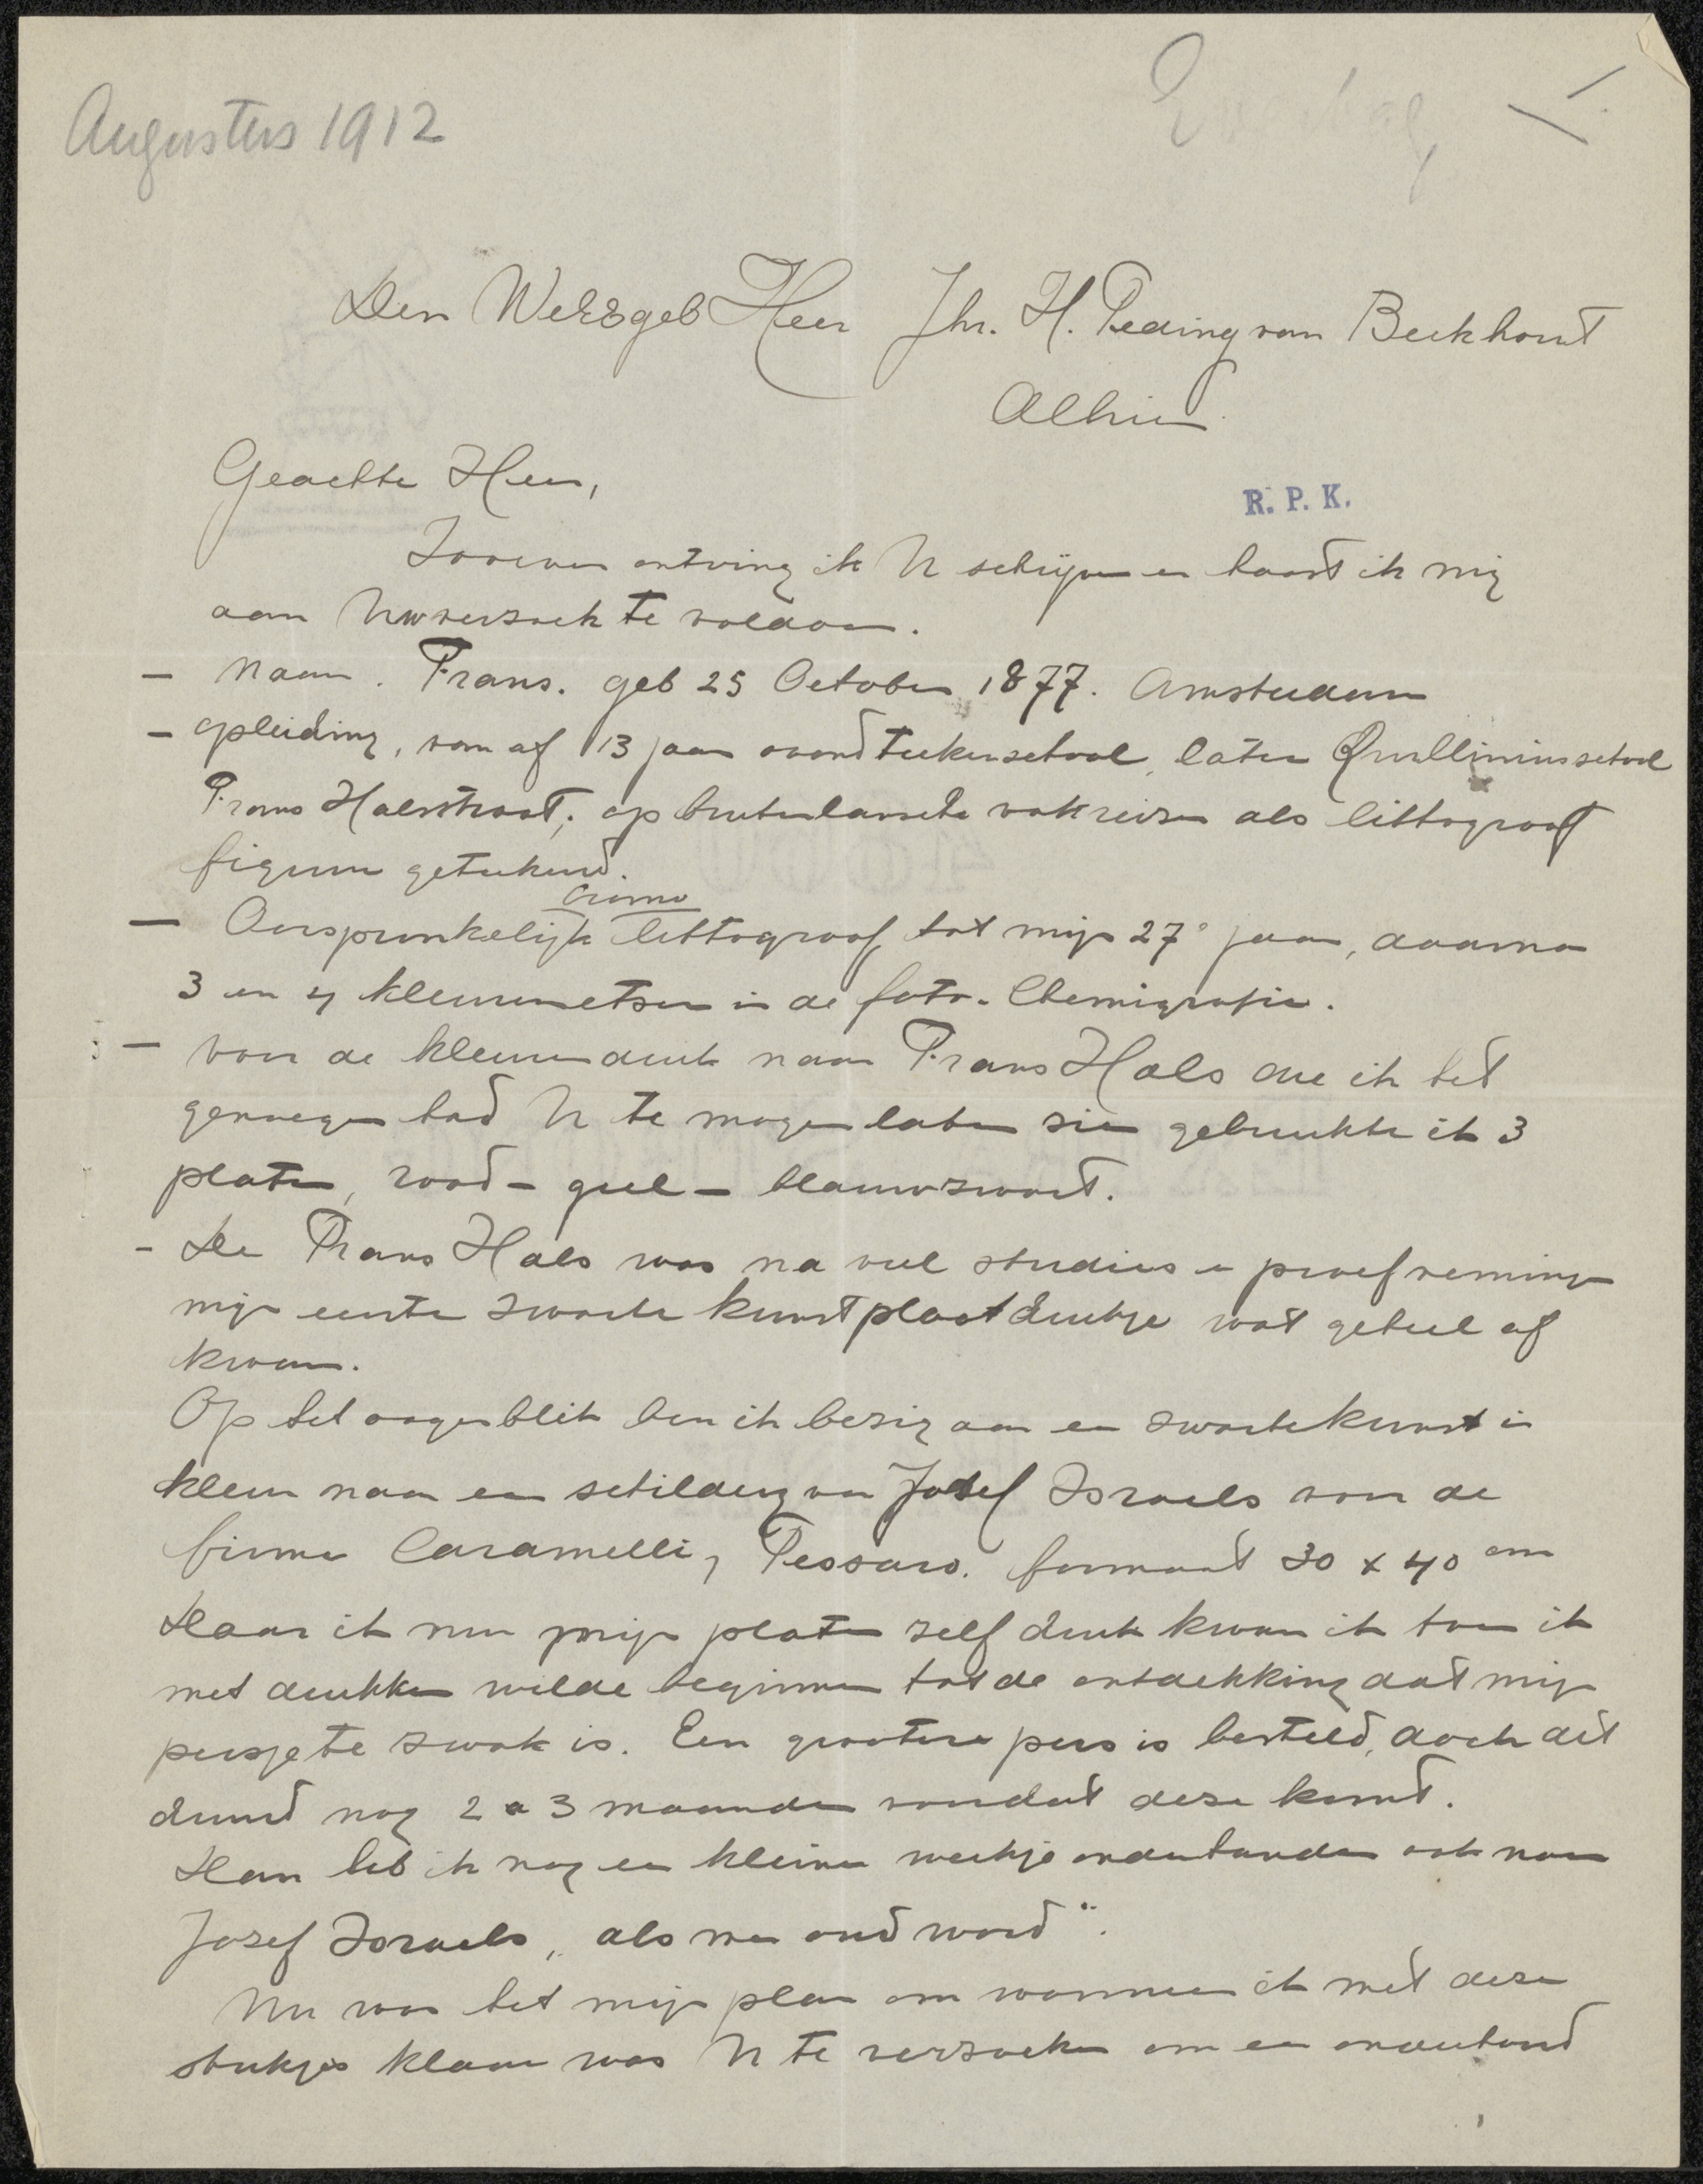 Augustus 1912
Den WelEdgeb Heer Jhr. H. Teding van Berkhout
Alhier.
Geachte Heer,
R. P. K.
Zooeven ontving ik U schrijven en haast ik mij
aan Uw verzoek te voldoen.
- Naam. Frans. geb 25 October 1877. Amsterdam
- opleiding, van af 13 jaar avondteekenschool, later Quellinusschool
Frans Halsstraat; op buitenlansche vakreizen als lithograaf
figuur geteekend.
cromo
- Oorspronkelijk lithograaf tot mijn 27e jaar, daarna
3 en 4 kleurenetser in de foto-Chemigrafie.
- voor de kleurendruk naar Frans Hals die ik het
genoegen had U te mogen laten zien gebruikte ik 3
platen, rood - geel - blauwzwart.
- De Frans Hals was na veel studies en proefneming
mijn eerste zwarte kunstplaatdrukje wat geheel af
kwam.
Op het oogenblik ben ik bezig aan een zwartekunst in
kleur naar een schilderij van Josef Israels voor de
firma Caramelli, Tessaro. formaat 30 x 40 cm
Daar ik nu mijn platen zelf druk kwam ik toen ik
met drukken wilde beginnen tot de ontdekking dat mijn
persje te zwak is. Een grootere pers is besteld, doch dit
duurd nog 2 a 3 maanden voordat deze komt.
Dan heb ik nog een kleiner werkje onderhanden ook naar
Josef Israels, "als men oud word".
Nu was het mijn plan om wanneer ik met deze
stukjes klaar was U te verzoeken om een onderhoud